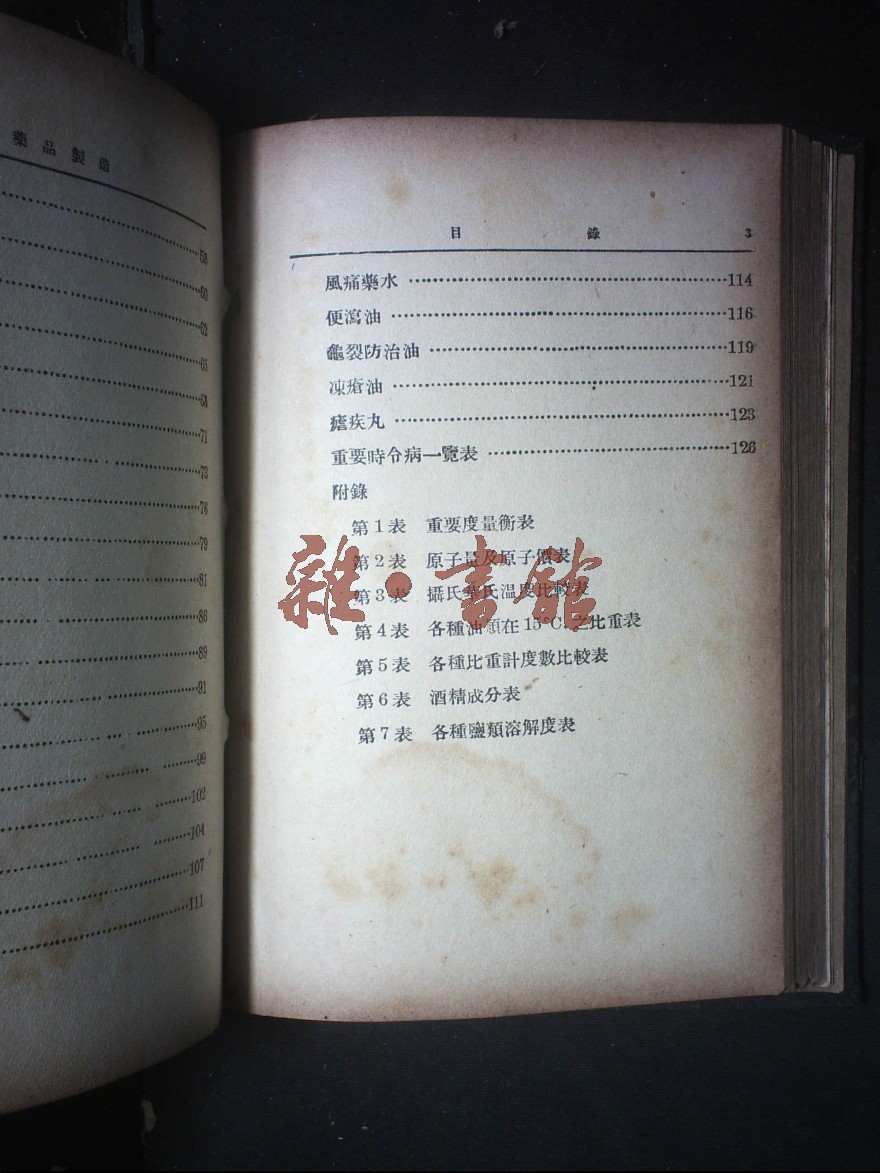 藥品製造
58
60
62
65
68
71
73
76
79
81
86
89
91
95
99
102
104
107
111
目錄 3
風痛藥水 114
便瀉油 116
龜裂防治油 119
凍瘡油 121
瘧疾丸 123
重要時令病一覽表 126
附錄
第1表 重要度量衡表
第2表 原子量及原子價表
第3表 攝氏華氏温度比較表
第4表 各種油類在15°C.之比重表
第5表 各種比重計度數比較表
第6表 酒精成分表
第7表 各種鹽類溶解度表
雜·書館